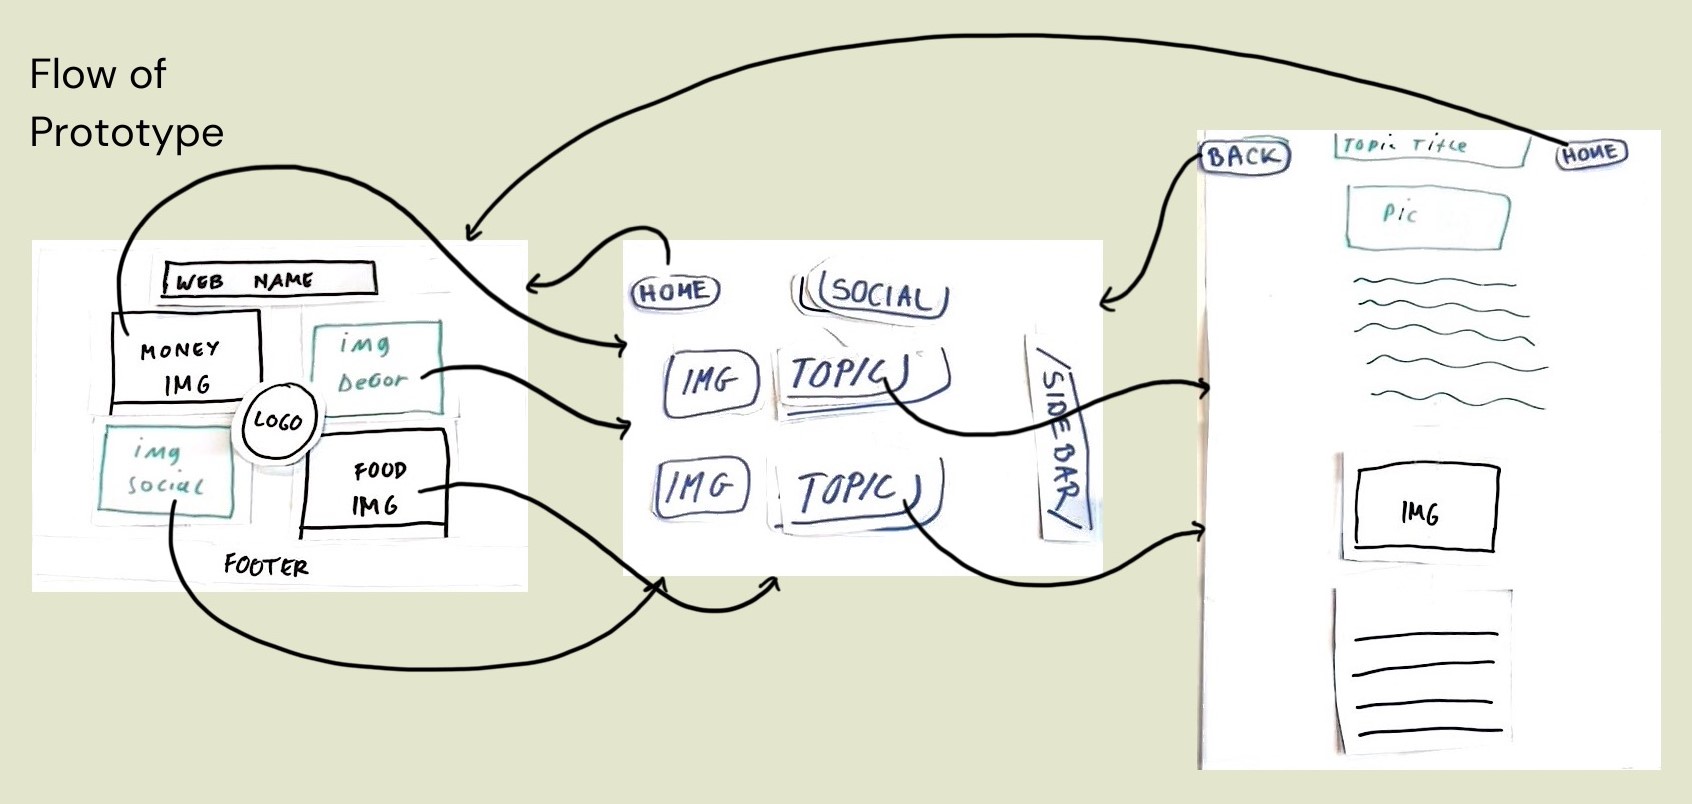 Flow of
Prototype
WEB NAME
MONEY
IMG
img
DeCor
LOGO
img
Social
FOOD
IMG
FOOTER
HOME
SOCIAL
IMG
TOPIC
IMG
TOPIC
SIDEBAR
BACK
Topic Title
HOME
Pic
IMG